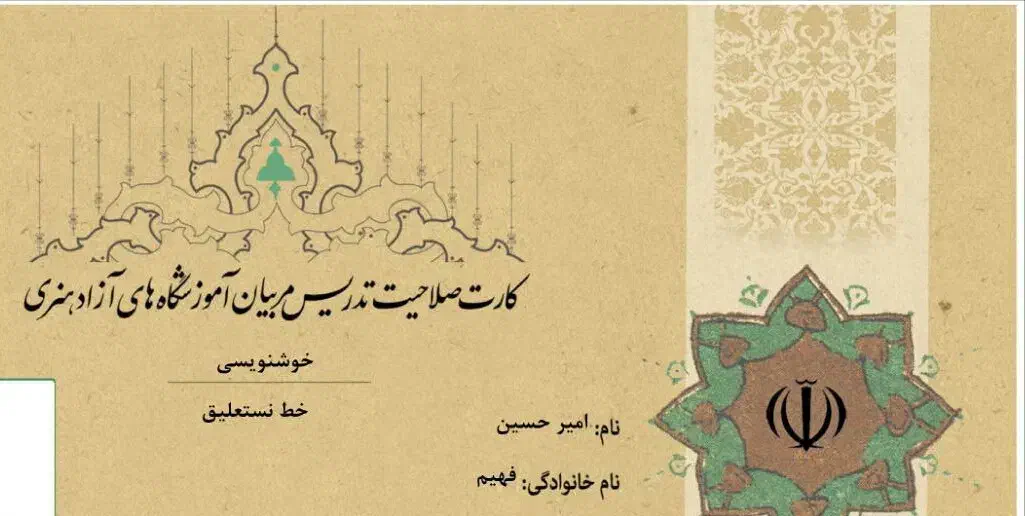 کارت صلاحیت تدریس مربیان آموزشگاه های آزاد هنری
خوشنویسی
خط نستعلیق
نام: امیر حسین
نام خانوادگی: فهیم